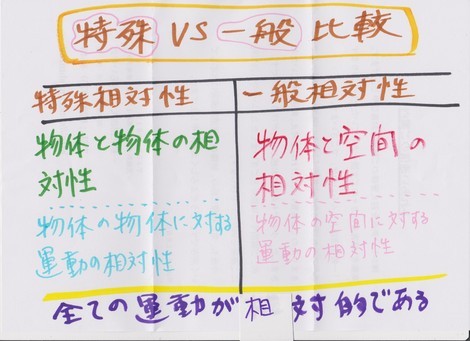 特殊 VS 一般 比較
特殊相対性
一般相対性
物体と物体の相
対性
物体と空間の
相対性
物体の物体に対する
運動の相対性
物体の空間に対する
運動の相対性
全ての運動が相対的である